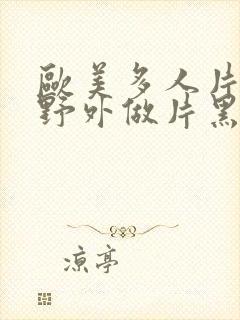 歐美多人片
野外做片黑
凉亭